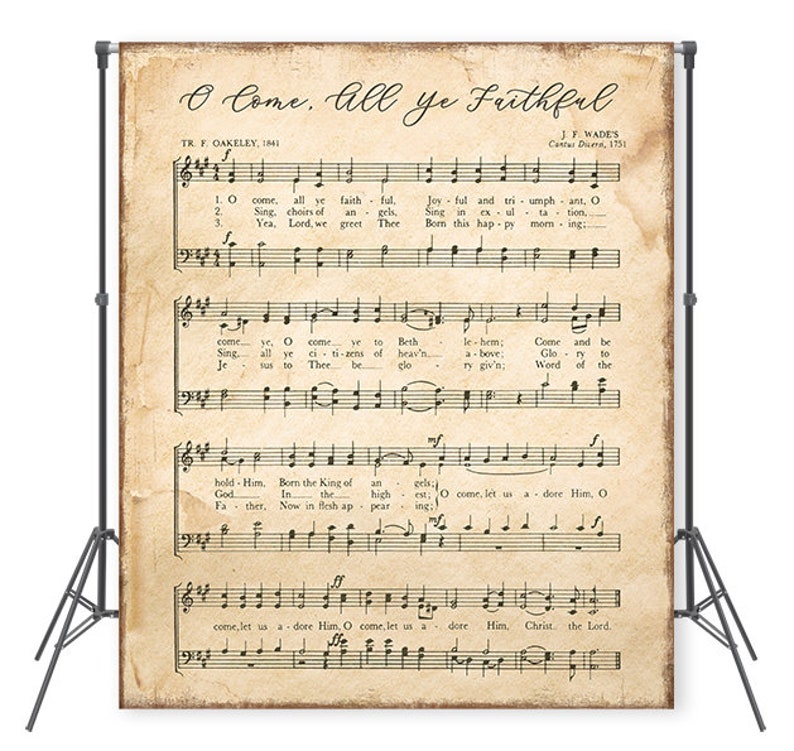 O Come, All Ye Faithful
TR. F. OAKELEY, 1841
J. F. WADE'S
Cantus Diversi, 1751
f
1. O come, all ye faith - ful, Joy - ful and tri - umph - ant, O
2. Sing, choirs of an - gels, Sing in ex - ul - ta - tion,
3. Yea, Lord, we greet Thee Born this hap - py morn - ing;
f
come ye, O come ye to Beth - le - hem; Come and be
Sing, all ye ci - ti - zens of heav'n a - bove; Glo - ry to
Je - sus to Thee be glo - ry giv'n; Word of the
mf f
hold - Him, Born the King of an - gels;
God In the high - est; O come, let us a - dore Him, O
Fa - ther, Now in flesh ap - pear - ing;
mf f
ff
come, let us a - dore Him, O come, let us a - dore Him, Christ the Lord.
ffe